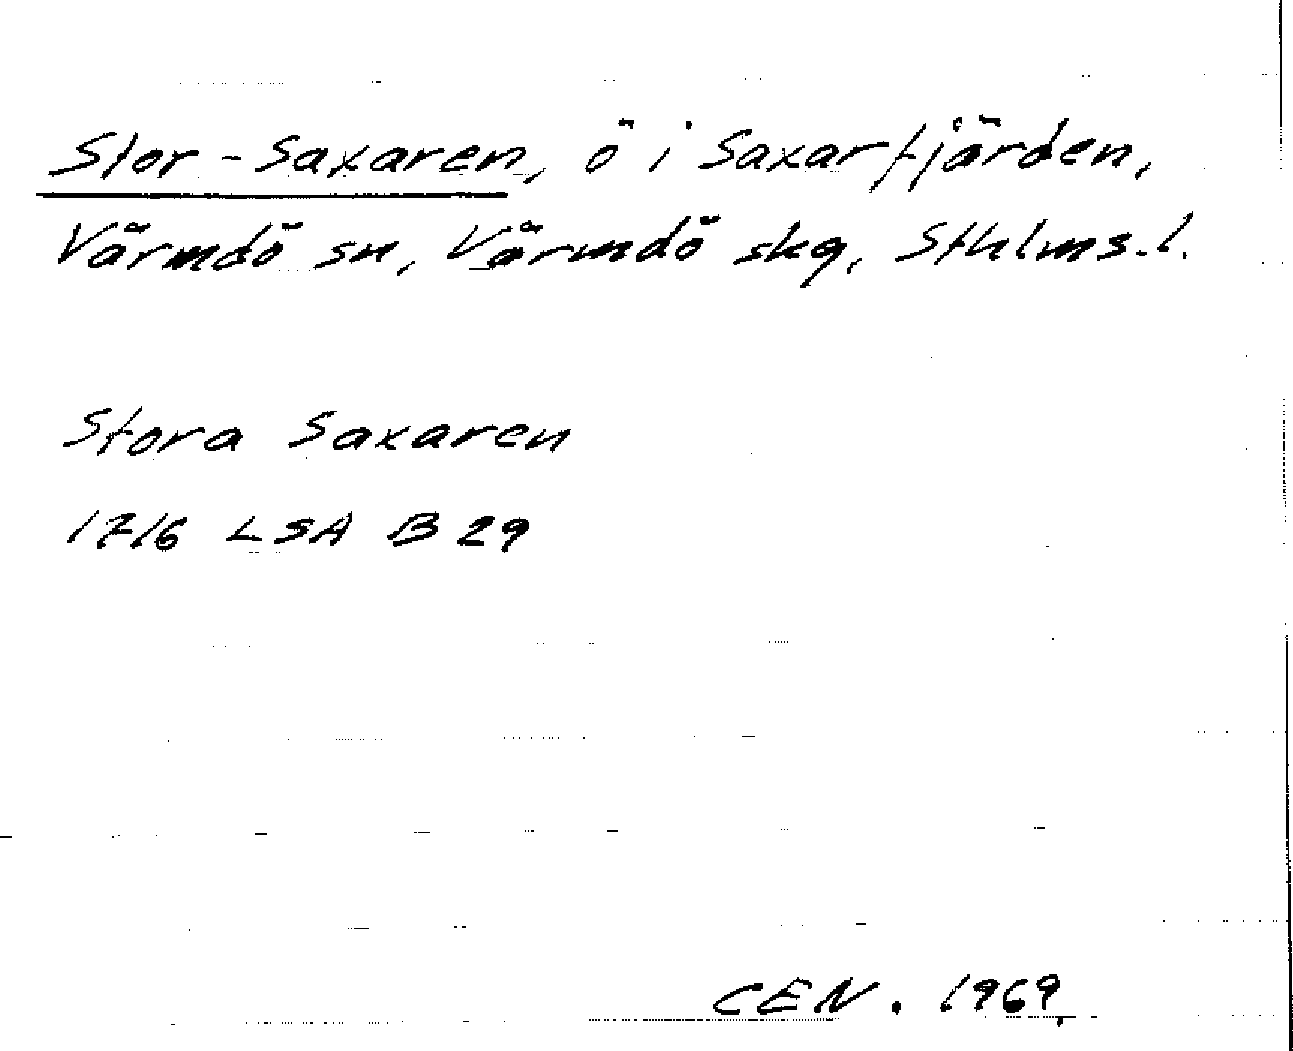 Stor-Saxaren, ö i Saxarfjärden,
Värmdö sn, Värmdö skg, Sthlms l.
Stora Saxaren
1716 LSA B 29
CEN. 1969.